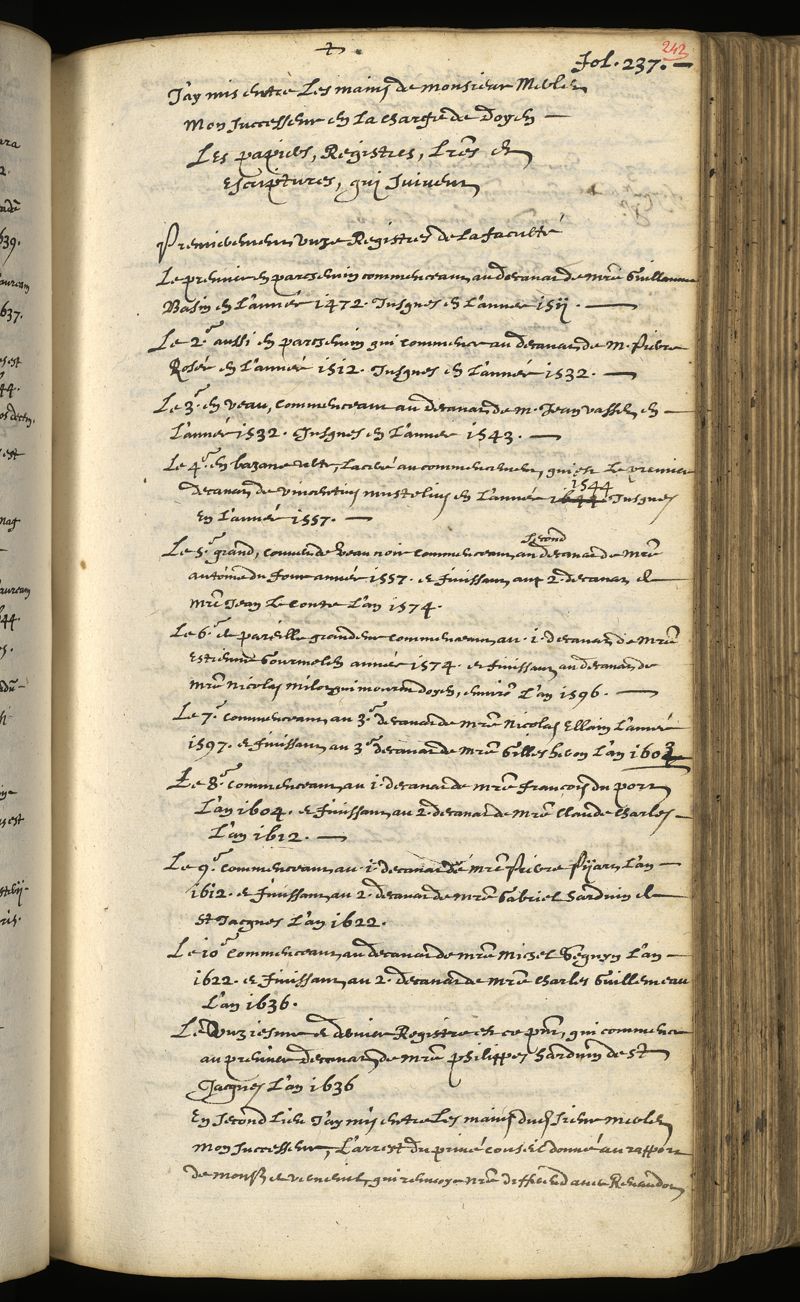 242
Fol. 237.
J'ay mis entre Les mains de monsieur Merlet
Mon successeur en La charge de doyen
Les papiers, Registres, Lres et
escriptures, qui suivent
Premierement unze Registres de la faculté
Le premier en parchemin commenceant au decanat de mre Guillaume
Basin en L'année 1472. Jusques en L'année 1511.
Le 2. aussi en parchemin qui commence au decanat de M. Pierre
Rosée en L'année 1512. Jusques en L'année 1532.
Le 3. en veau, commenceant au decanat de M. Jean vassen en
L'année 1532. Jusques en L'année 1543.
Le 4. en bazane verte, laceré au commencement, qui est Le premier
decanat de vincentius mustelius en L'année 1544 Jusques
En L'année 1557.
Le 5. grand, couvert de veau noir commenceant au second decanat de mre
antoine du four année 1557. et finissant au 2. decanat de
mre Jean Le Conte L'an 1574.
Le 6. de pareille grandeur commenceant au 1. decanat de Mre
Estienne Gourmelen année 1574. et finissant au decanat de
mre Nicolas milot qui mourut doyen, environ L'an 1596.
Le 7. commenceant au 3. decanat de mre Nicolas Ellain L'année
1597. et finissant au 3. decanat de mre Gilles heron L'an 1603
Le 8. commenceant au 1. decanat de mre françois du port
L'an 1604. et finissant au 2. decanat de mre Claude Charles
L'an 1612.
Le 9. commenceant au 1. decanat de mre Pierre Pijart L'an
1612. et finissant au 2. decanat de mre Gabriel harduin de
St Jacques L'an 1622.
Le 10. commenceant au decanat de mre Michel Seguyn L'an
1622. et finissant au 2. decanat de mre Charles Guillemeau
L'an 1636.
Le Unziesme et dernier Registre est ce pnt, qui commence
au premier decanat de mre philippes harduin de St
Jacques L'an 1636
En second lieu J'ay mis entre Les mains dudt sieur merlet
mon successeur, L'arrest du privé conseil donné au rapport
de monsr de verneuil, qui renvoye nre different avec Renaudot